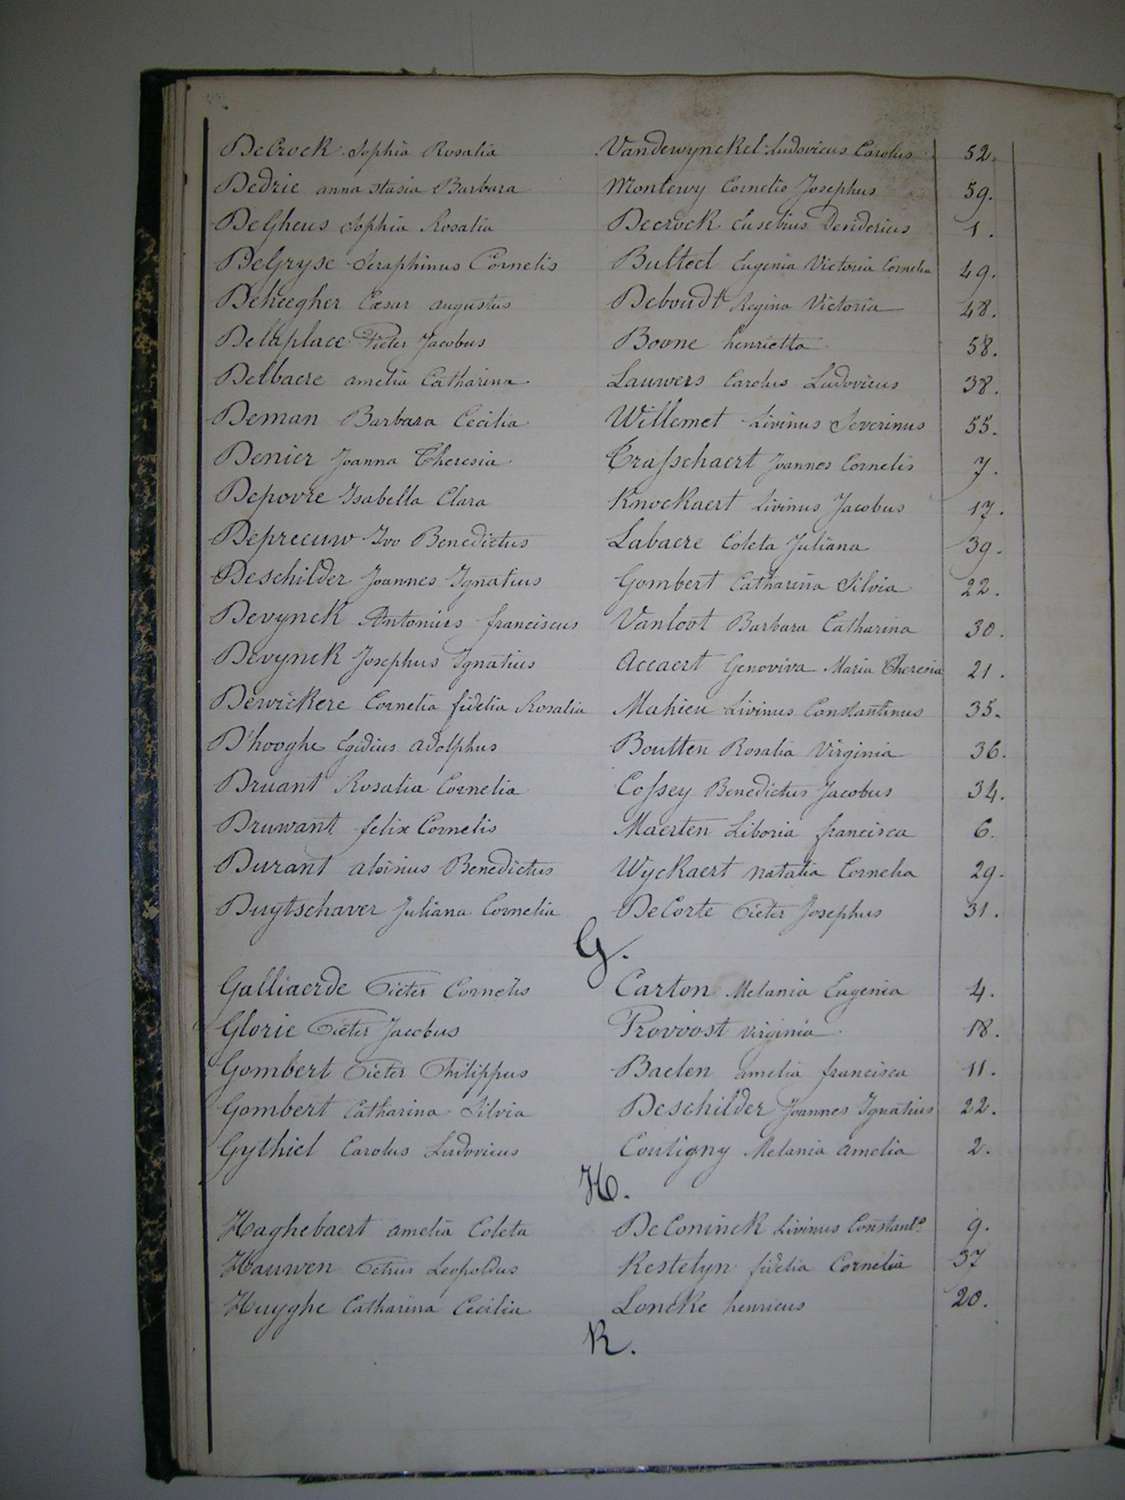 DeCrock Sophia Rosalia Vandewynckel Ludovicus Carolus 52.
Dedrie anna stasia Barbara Montewy Cornelis Josephus 59.
DeGheus Sophia Rosalia Decrock Eusebius Desiderius 1.
DeGryse Seraphinus Cornelis Bulteel Eugenia Victoria Cornelia 49.
Deheegher Cæsar augustus Deboudt Regina Victoria 48.
Delaplace Pieter Jacobus Boone henrietta 58.
Delbaere amelia Catharina Lauwers Carolus Ludovicus 38.
Deman Barbara Cecilia Willemet Livinus Severinus 55.
Denier Joanna Theresia Trasschaert Joannes Cornelis 7.
Depovre Isabella Clara Knockaert Livinus Jacobus 17.
Depreeuw Ivo Benedictus Labaere Coleta Juliana 39.
Deschilder Joannes Ignatius Gombert Catharina Silvia 22.
Devynck Antonius franciscus Vanloot Barbara Catharina 30.
Devynck Josephus Ignatius Accaert Genoviva Maria Theresia 21.
Dewickere Cornelia fidelia Rosalia Mahieu Livinus Constantinus 35.
D'hooghe Egidius adolphus Boutten Rosalia Virginia 36.
Druant Rosalia Cornelia Cossey Benedictus Jacobus 34.
Druwant felix Cornelis Maerten Liboria francisca 6.
Durant aloisius Benedictus Wyckaert natalia Cornelia 29.
Duytschaver Juliana Cornelia DeCorte Pieter Josephus 31.
G.
Galliaerde Pieter Cornelis Carton Melania Eugenia 4.
Glorie Pieter Jacobus Provoost virginia 18.
Gombert Pieter Philippus Baelen amelia francisca 11.
Gombert Catharina Silvia Deschilder Joannes Ignatius 22.
Gythiel Carolus Ludovicus Coutigny Melania amelia 2.
H.
Haghebaert amelia Coleta DeConinck Livinus Constant.s 9.
Hauwen Petrus Leopoldus Kestelyn fidelia Cornelia 37
Huyghe Catharina Cecilia Loncke henricus 20.
K.